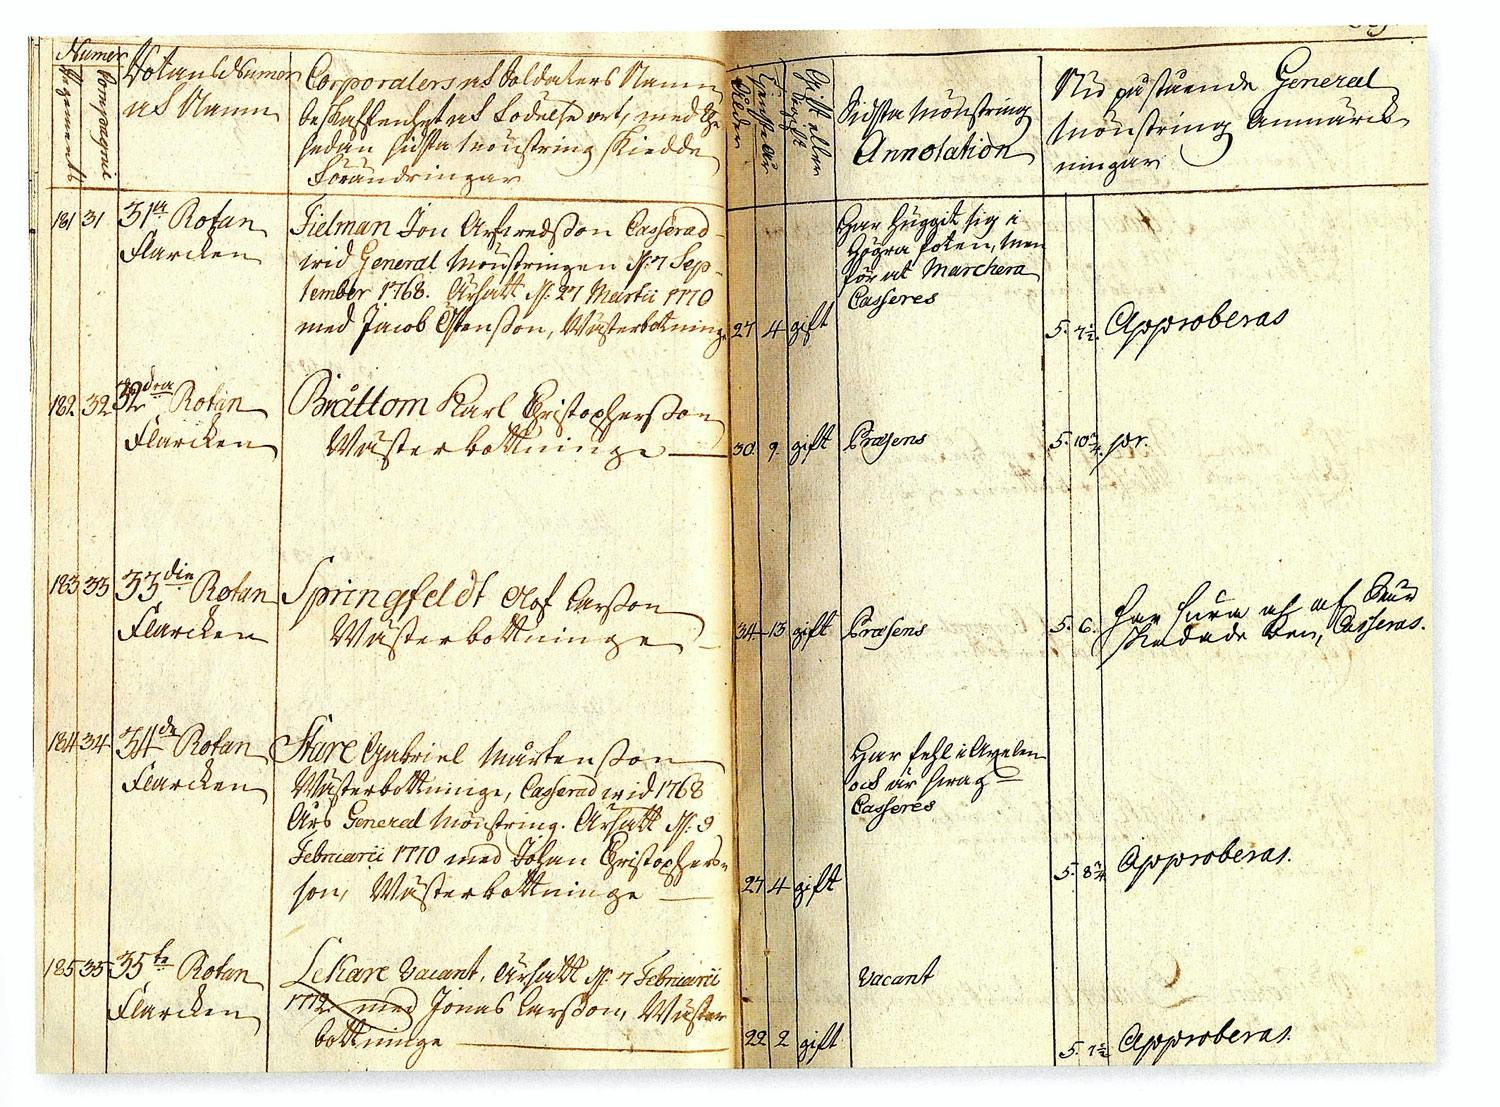 Numer
Regements
Compagnie
Rotans Numer
och Namn
Corporalers och Soldaters Namn
beskaffenhet och födelse ort, med the
sedan sidsta Mönstring skiedde
Förändringar
Ålder
Tjenste år
Gift eller ogift
Sidsta Mönstrings
Annotation
Nu påstående General
Mönstrings anmärck-
ningar
181 31 31sta Rotan
Flarcken
Fielman Jon Arfwedsson Casserad
wid General Mönstringen d. 7 Sep-
tember 1768. Ersatt d. 27 Martii 1770
med Jacob Östensson, Wästerbottninge
27 4 gift
Har huggit sig i
högra foten, men
för at Marchera
Casseres
5. 7½. Approberas
182 32 32dra Rotan
Flarcken
Bråttom Karl Christophersson
Wästerbottninge
30 9. gift Præsens
5. 10¾ pr.
183 33 33die Rotan
Flarcken
Springfeldt Olof Larsson
Wästerbottninge
34 13 gift Præsens
5. 6. Har sura och af
skadade ben, Casseras.
184 34 34de Rotan
Flarcken
Stare Gabriel Mårtensson
Wästerbottninge, Casserad wid 1768
Års General Mönstring. Ersatt d. 9
Februarii 1770 med Johan Christophers-
son, Wästerbottninge
27 4 gift
Har fehl i Axelen
och är swag
Casseres
5. 8¾ Approberas.
185 35 35te Rotan
Flarcken
Lekare Vacant. Ersatt d. 7 Februarii
1772 med Jonas Larsson, Wäster
bottninge
22 2 gift
Vacant
5. 7½ Approberas.